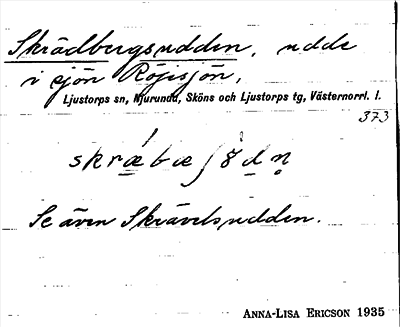 Skrädbergsudden, udde
i sjön Röjesjön,
Ljustorps sn, Njurunda, Sköns och Ljustorps tg, Västernorrl. l.
373
Se även Skrävelsudden.
ANNA-LISA ERICSON 1935